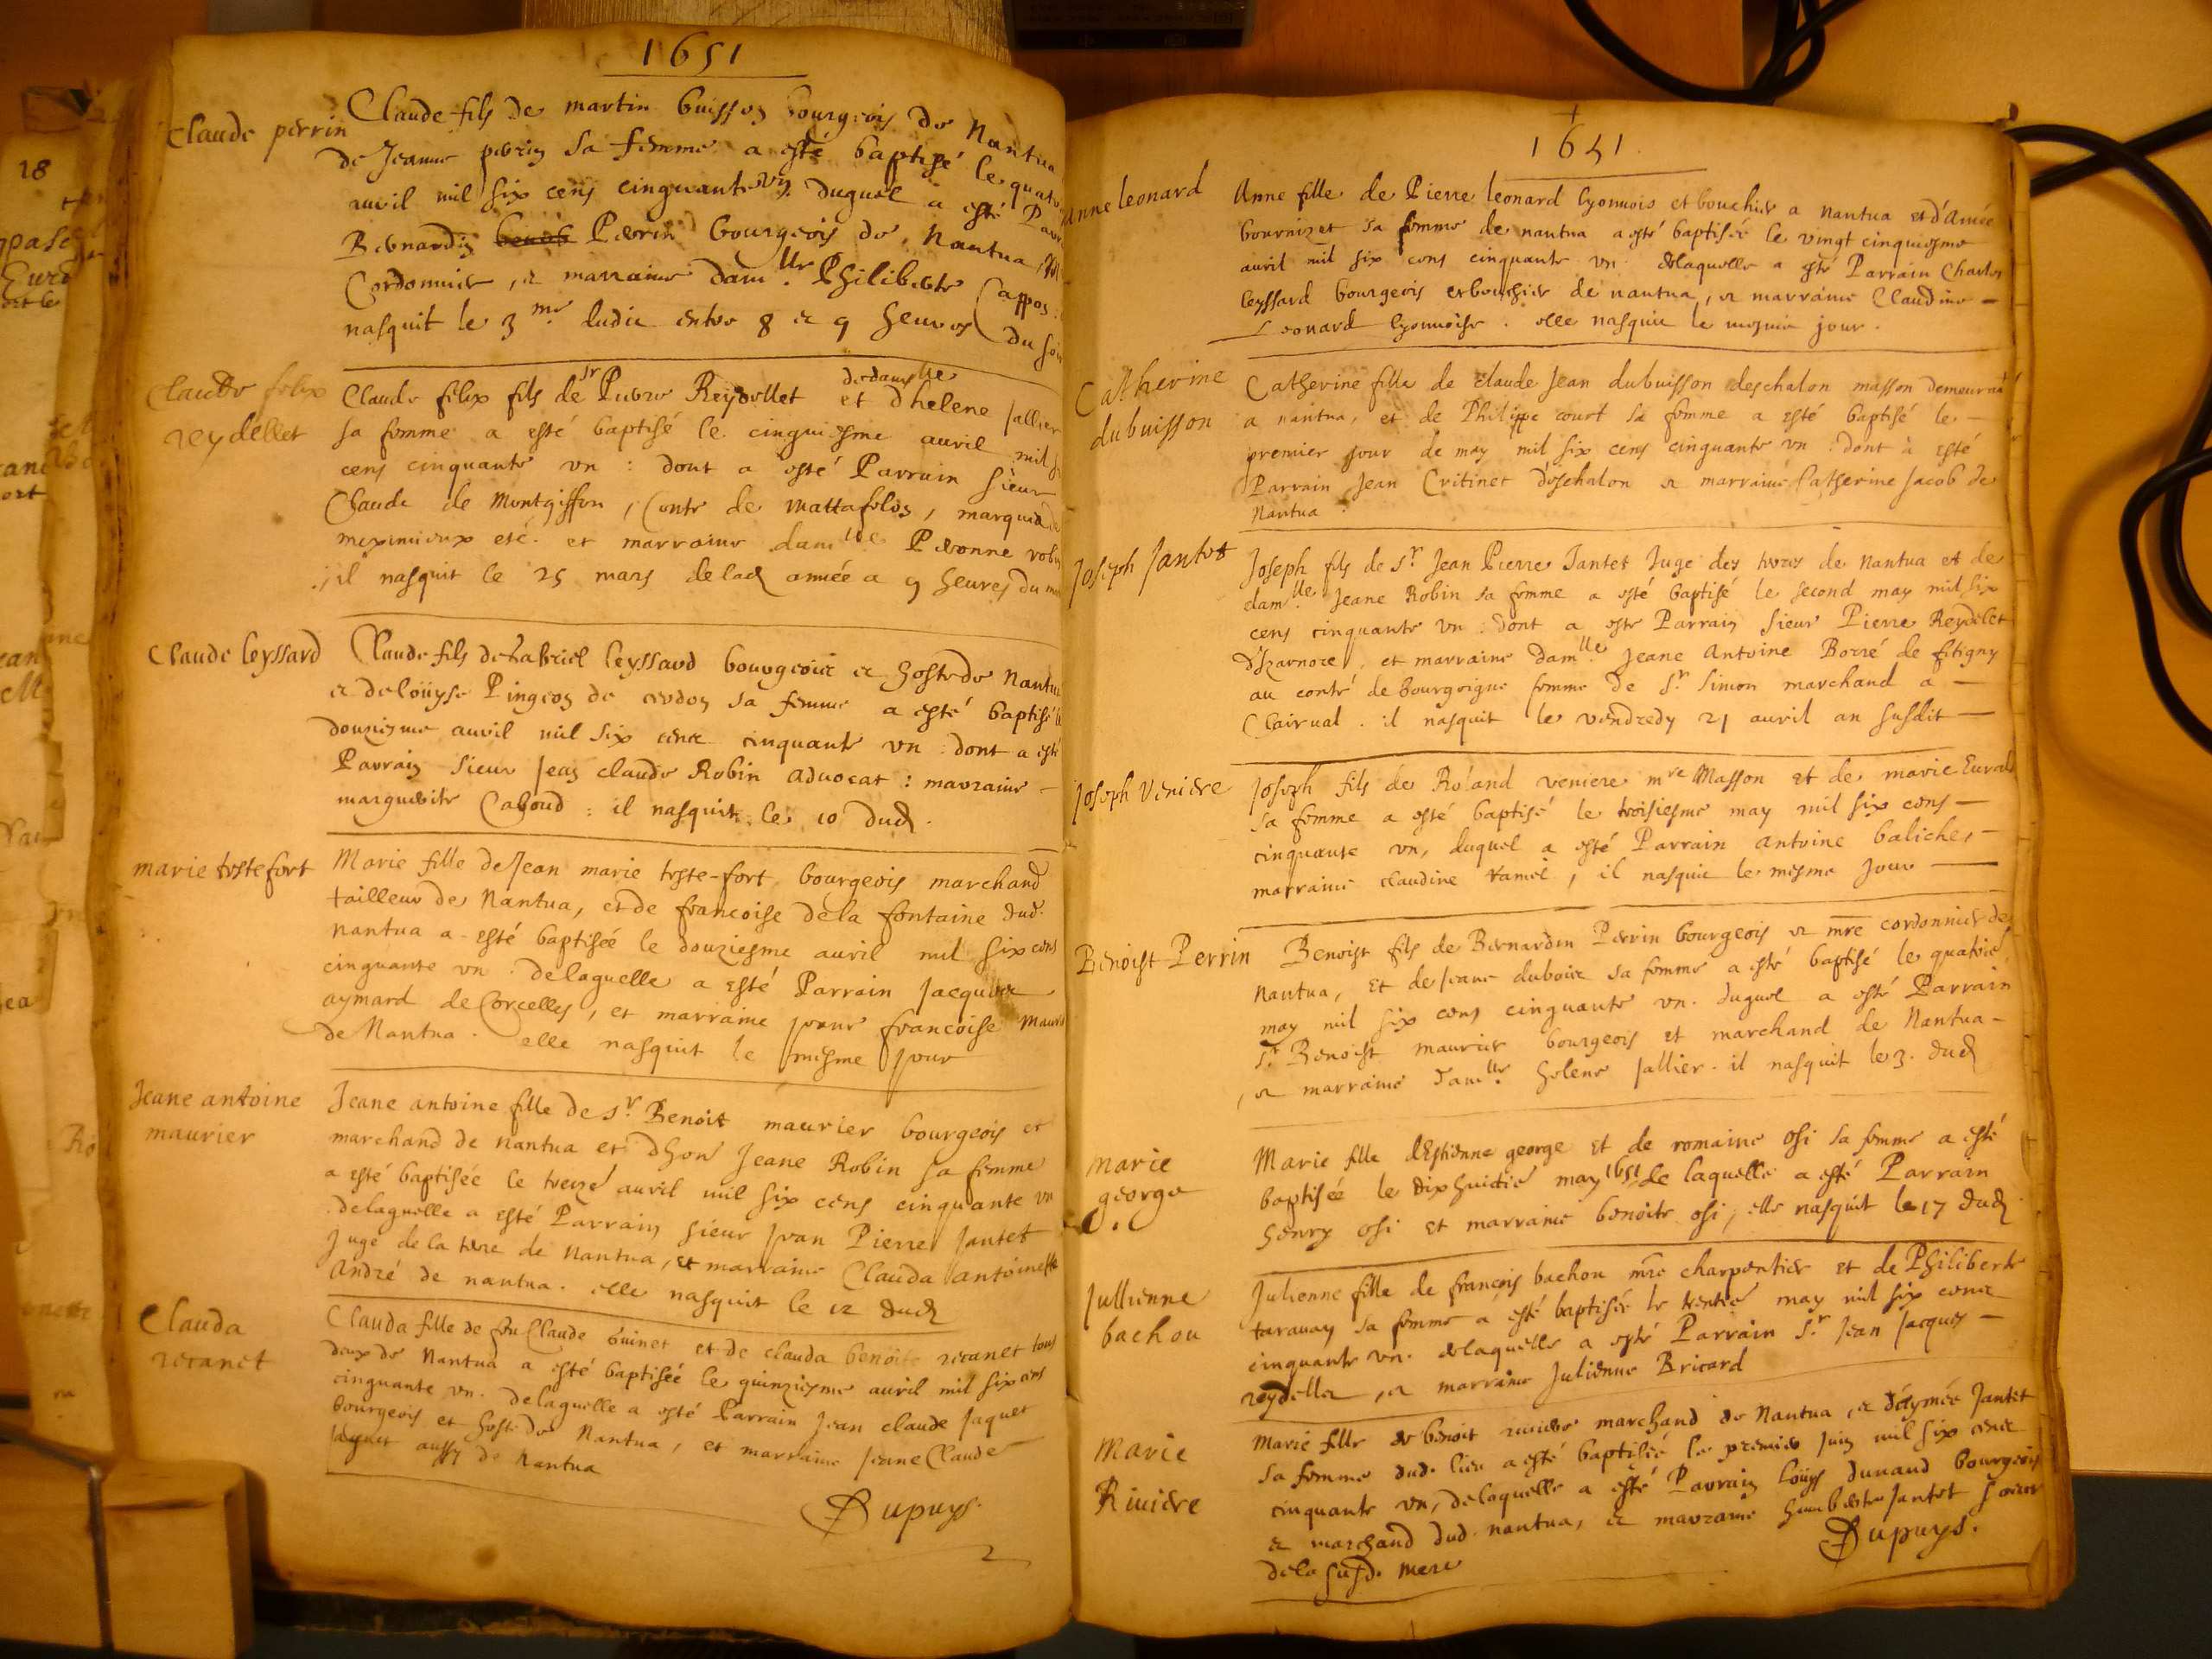 1651
Claude perrin
Claude fils de martin buisson bourgeois de Nantua
de Jeanne perrin sa femme a esté baptisé le quato
avril mil six cens cinquante vn. duquel a esté Parr
Bernardin Perrin bourgeois de Nantua
Cordonnier, et marraine dam.lle Philiberte Cappon
nasquit le 3.me dudit entre 8 et 9 heures du soir
Claude felix
reydellet
Claude felix fils de sr Pierre Reydellet et d'helene Jallier
sa femme a esté baptisé le cinquiesme avril mil
cens cinquante vn : dont a esté Parrain sieur
Claude de Montgiffon, Conte de Mattafelon, marquis de
meximieux etc. et marraine dam.lle Peronne robin
il nasquit le 25 mars de lad année a 9 heures du
Claude leyssard
Claude fils de Gabriel leyssard bourgeois et hoste de Nantua
et de loüyse Pingeon de cerdon sa femme a esté baptisé le
douziesme auril mil six cens cinquante vn : dont a esté
Parrain sieur Jean claude Robin aduocat : marraine -
marguerite Caboud : il nasquit le 10 dud.
marie teste fort
Marie fille de Jean marie teste-fort bourgeois marchand
tailleur de Nantua, et de francoise de la fontaine dud.
Nantua a esté baptisée le douziesme avril mil six cens
cinquante vn . de laquelle a esté Parrain Jacques
aymard de Corcelles, et marraine francoise
de Nantua . elle nasquit le mesme jour
Jeane antoine
maurier
Jeane antoine fille de sr. Benoit maurier bourgeois et
marchand de nantua et d'hon Jeane Robin sa femme
a esté baptisée le treize avril mil six cens cinquante vn
de laquelle a esté Parrain sieur Jean Pierre Jantet
Juge de la terre de Nantua, et marraine Clauda antoinette
André de nantua . elle nasquit le 12 dud
Clauda
recanet
Clauda fille de feu Claude Guinet et de clauda benoite recanet tous
deux de Nantua a esté baptisée le quinziesme avril mil six cens
cinquante vn . de laquelle a esté Parrain Jean claude Jaquet
bourgeois et hoste de Nantua, et marraine Jeane Claude
Jaquet aussy de Nantua
Dupuys.
1651
Anne leonard
Anne fille de Pierre leonard lyonnois et boucher a Nantua et d'Amée
bournizet sa femme de nantua a esté baptisée le vingt cinquiesme
avril mil six cens cinquante vn . de laquelle a esté Parrain Charles
leyssard bourgeois et boucher de nantua, et marraine Claudine -
Leonard lyonnoise . elle nasquit le mesme jour .
Catherine
dubuisson
Catherine fille de Claude Jean dubuisson deschalon masson demeurant
a nantua, et de Philippe court sa femme a esté baptisé le -
premier jour de may mil six cens cinquante vn : dont à esté
Parrain Jean Critinet d'eschalon et marraine Catherine Jacob de
Nantua .
Joseph Jantet
Joseph fils de sr. Jean Pierre Jantet Juge des terres de Nantua et de
dam.lle Jeane Robin sa femme a esté baptisé le second may mil six
cens cinquante vn : dont a este Parrain sieur Pierre Reydelet
d'Izarnore, et marraine dam.lle Jeane Antoine Borré de fetigny
au conté de Bourgoigne femme de sr. Simon marchand a -
Clairual . il nasquit le vendredy 21 auril an susdit -
Joseph Veniere
Joseph fils de Roland veniere mre Masson et de marie
sa femme a esté baptisé le troisiesme may mil six cens -
cinquante vn, duquel a esté Parrain antoine baliche, -
marraine claudine ramel, il nasquit le mesme jour -
Benoist Perrin
Benoist fils de Bernardin Perrin bourgeois et mre cordonnier de
Nantua, Et de Jeane dubois sa femme a esté baptisé le quatrie
may mil six cens cinquante vn . duquel a esté Parrain
sr. Benoist maurier bourgeois et marchand de Nantua -
, et marraine dam.lle helene Jallier . il nasquit le 3. dud
Marie
george
Marie fille d'Estienne george et de romaine osi sa femme a esté
baptisée le dixhuictie may 1651 de laquelle a esté Parrain
henry osi et marraine benoite osi, elle nasquit le 17 dud
Jullienne
bachou
Julienne fille de francois bachou mre charpentier et de Philiberte
tarauay sa femme a esté baptisée le trentie may mil six cens
cinquante vn . de laquelle a esté Parrain sr. Jean Jacques -
reydellet, et marraine Julienne Bricard
Marie
Riuiere
Marie fille de benoit riuiere marchand de Nantua, et d'aymée Jantet
sa femme dud. lieu a esté baptisée le premier juin mil six cens
cinquante vn, de laquelle a esté Parrain loüys dunand bourgeois
et marchand dud. nantua, et marraine humberte Jantet soeur
de la susd. mere
Dupuys.